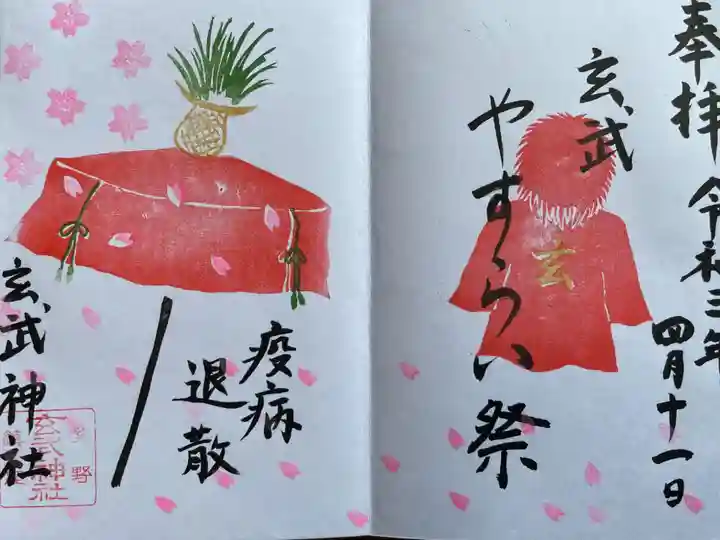 奉拝 令和三年
四月十一日
玄武
やすらい祭
玄
疫病
退散
玄武神社
玄武神社